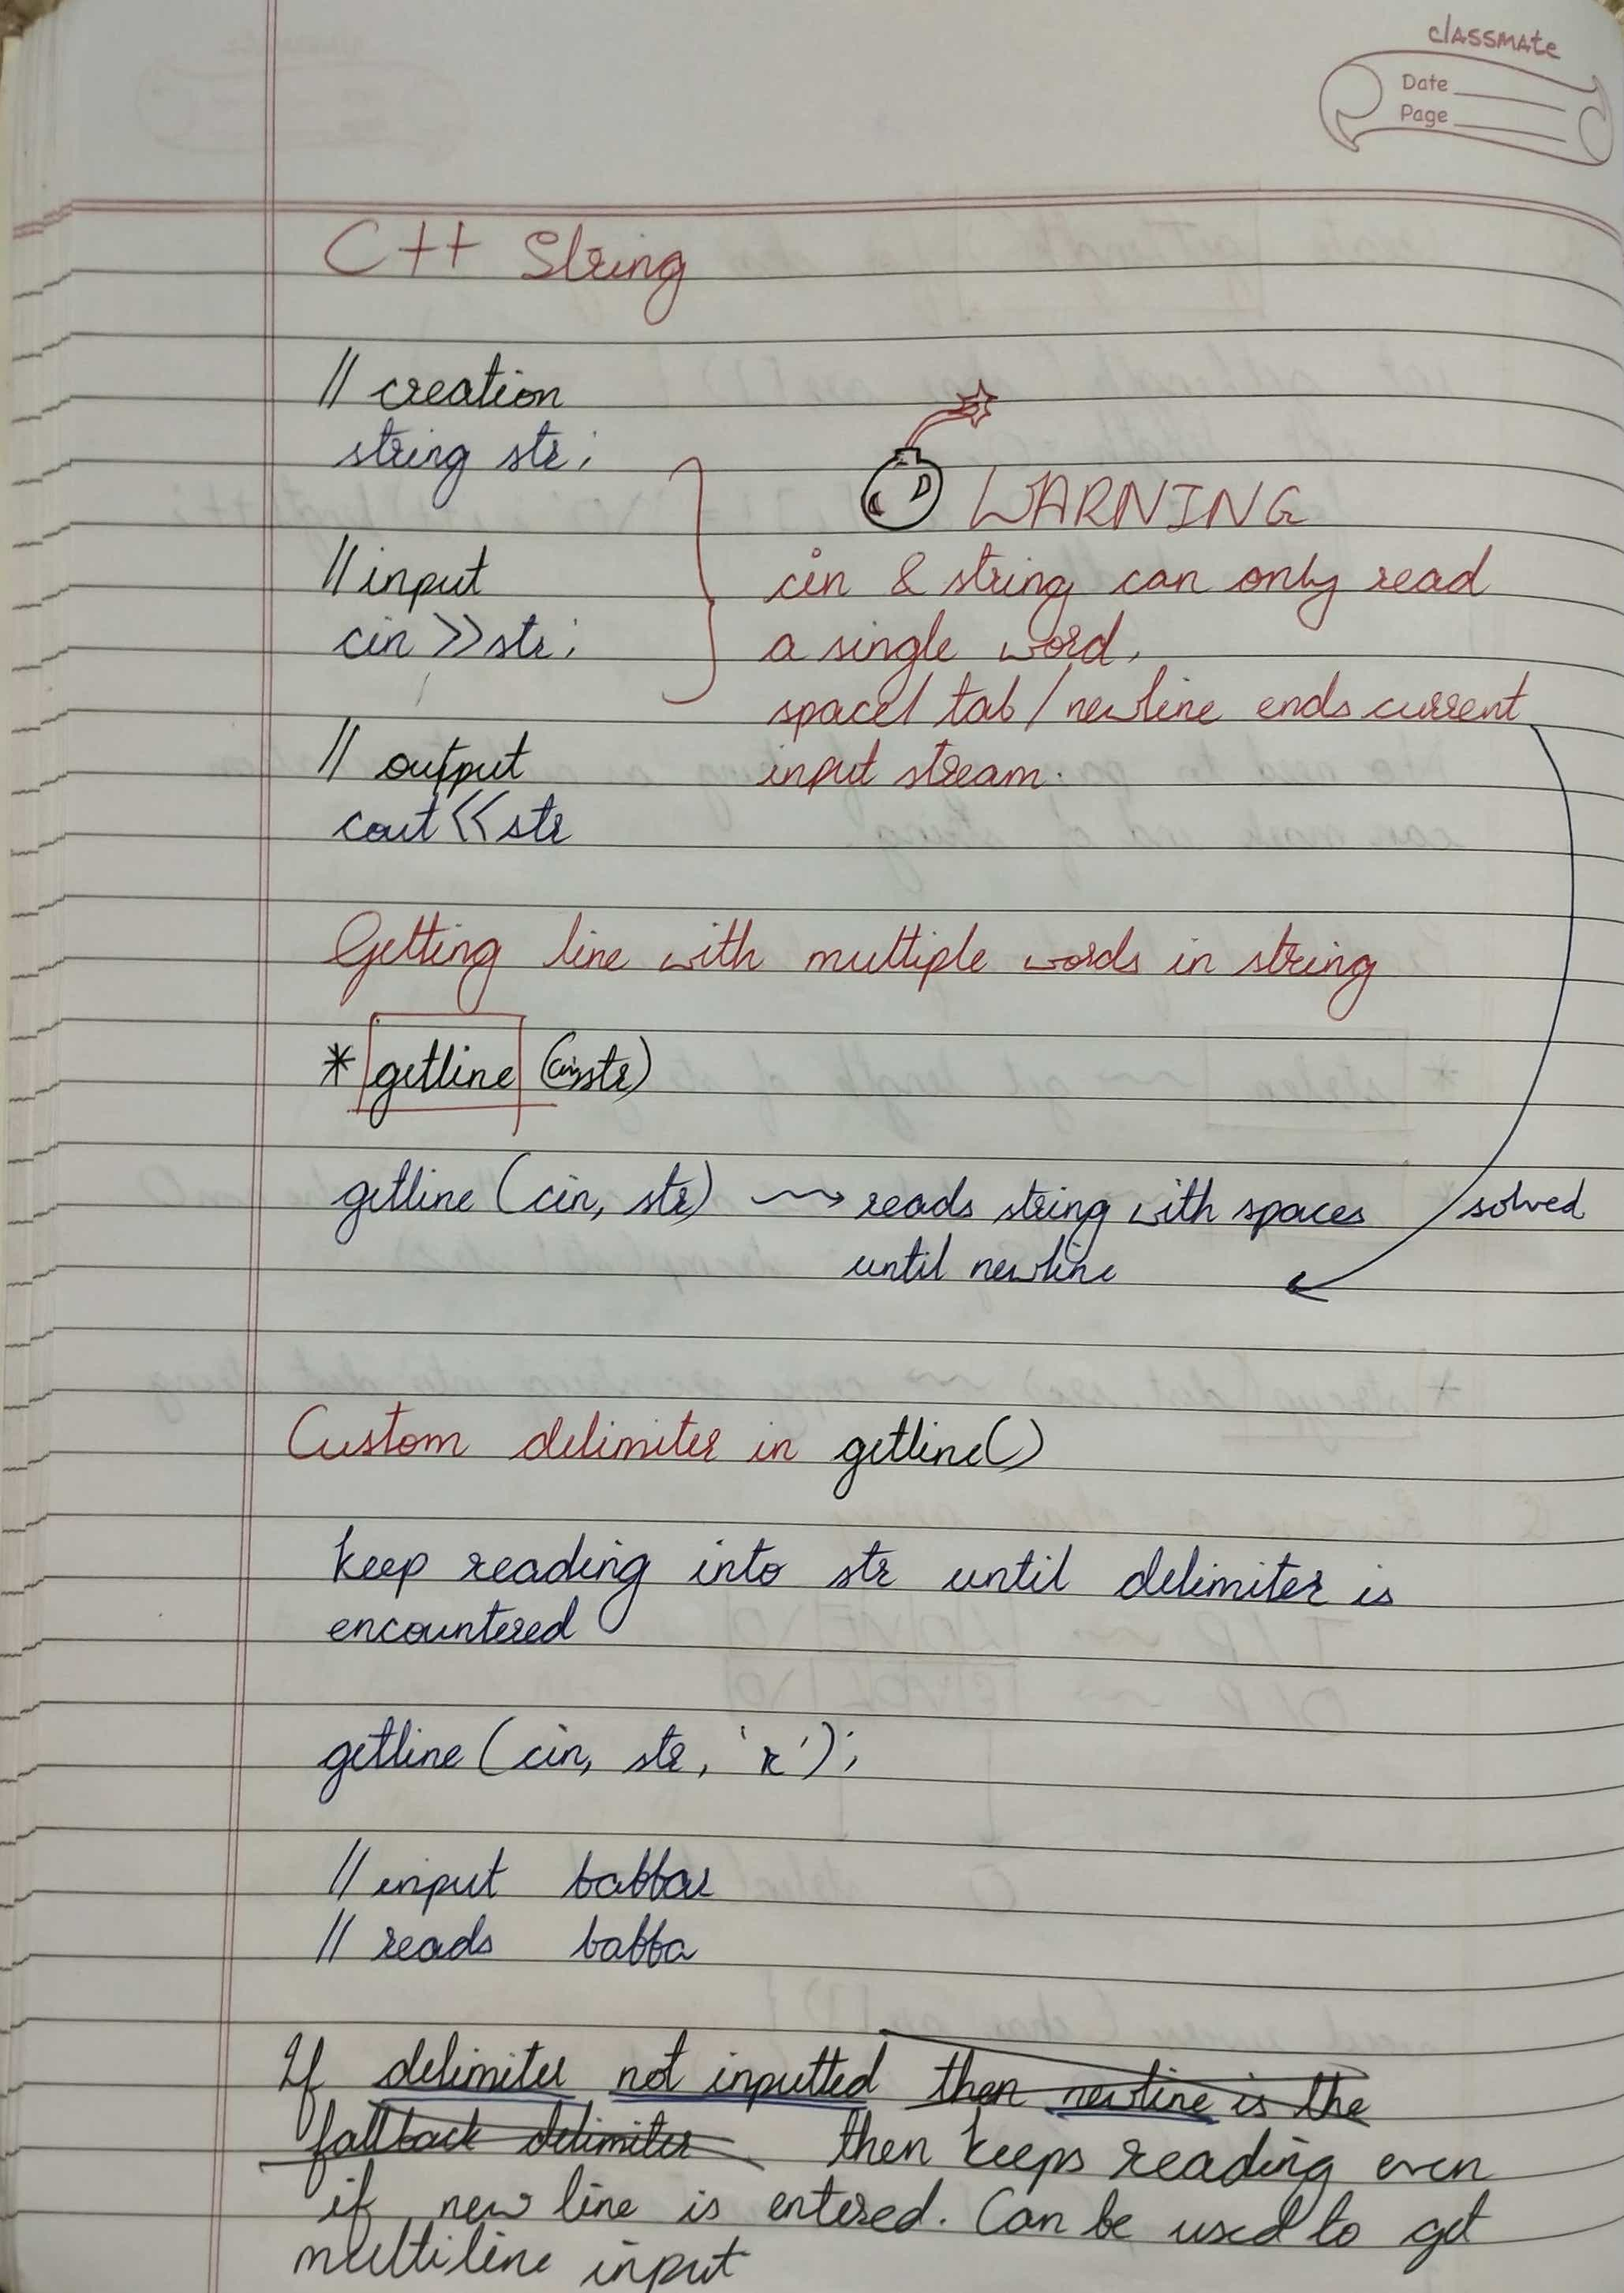 classmate
Date
Page
C++ String
// creation
string str;
WARNING
// input
cin & string can only read
cin >> str;
a single word,
space/ tab / newline ends current
// output
input stream.
cout << str
Getting line with multiple words in string
* getline (cin, str)
getline (cin, str) ⇝ reads string with spaces solved
until newline
Custom delimiter in getline()
keep reading into str until delimiter is
encountered
getline (cin, str, 'r');
// input babbar
// reads babba
If delimiter not inputted then newline is the
fallback delimiter then keeps reading even
if new line is entered. Can be used to get
multiline input